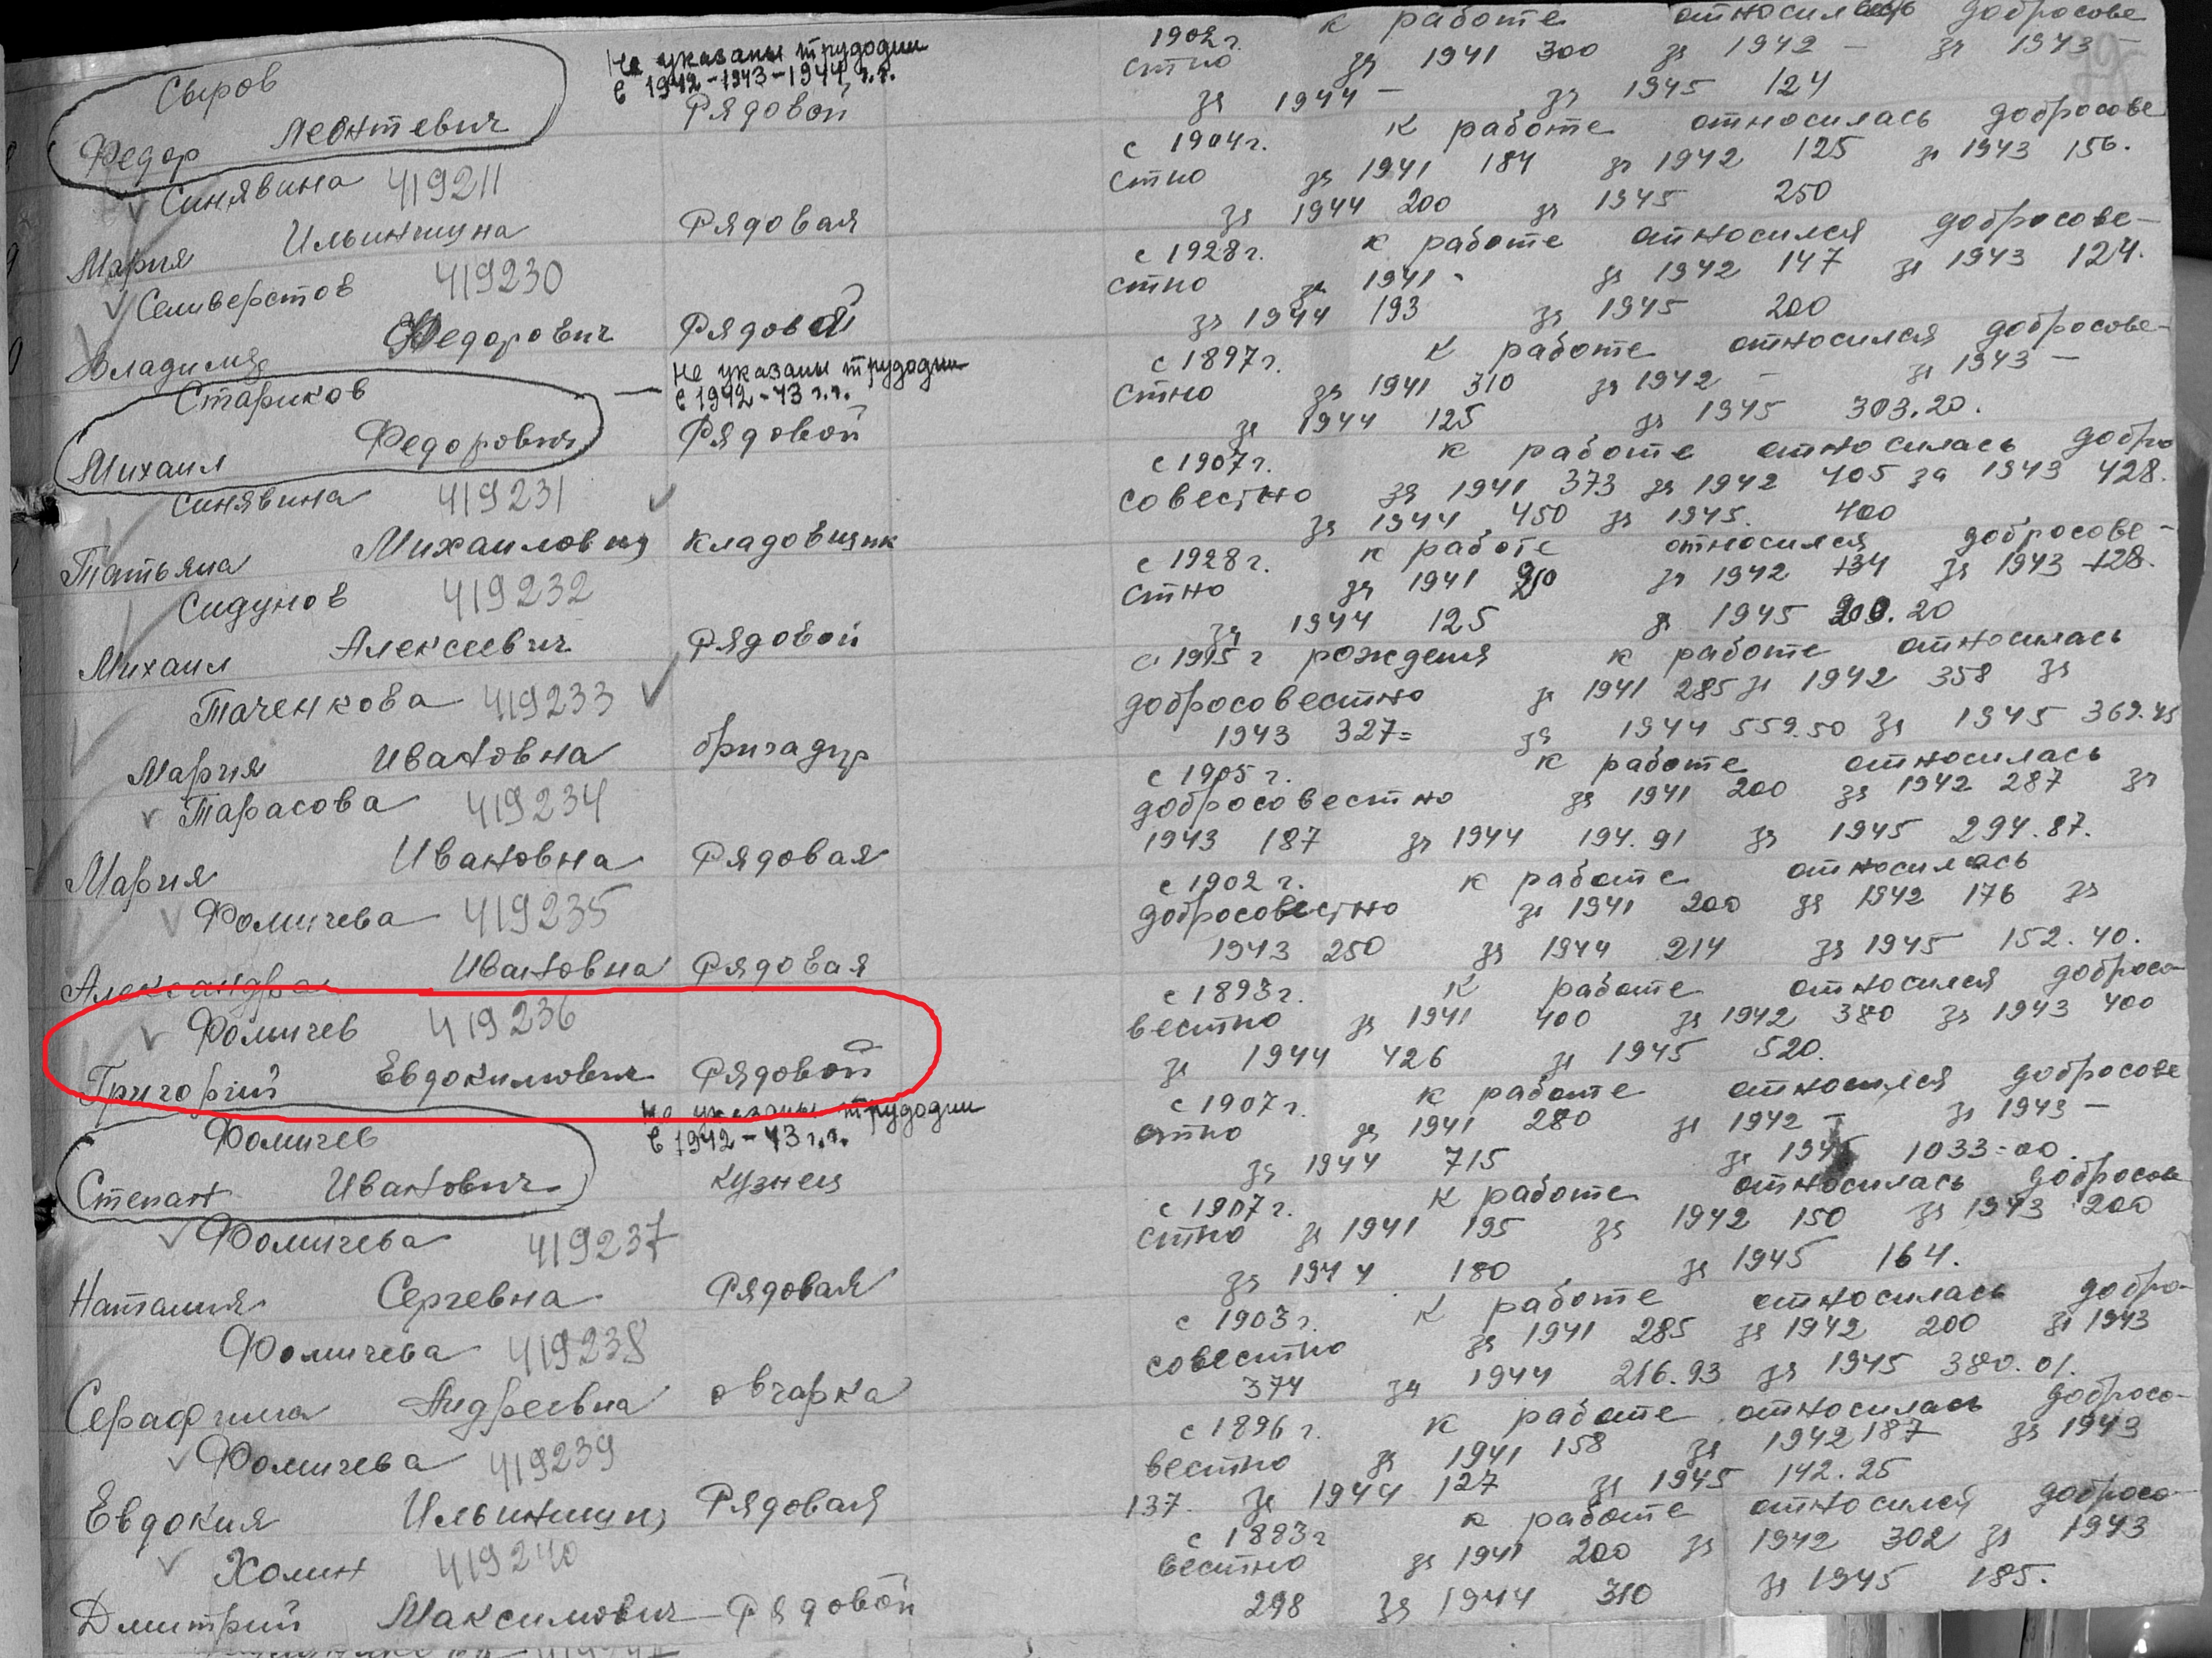 1902г. к работе относилась добросове
Сыров Не указаны трудодни стно за 1941 300 за 1942 - за 1943 -
в 1942-1943-1944 г.г.
Федор Леонтевич Рядовой за 1944 - за 1945 124
Синявина 419211 с 1904г. к работе относилась добросове
стно за 1941 184 за 1942 125 за 1943 156.
Мария Ильинична Рядовая за 1944 200 за 1945 250
Селиверстов 419230 с 1928г. к работе относился добросове-
стно за 1941 - за 1942 147 за 1943 124.
Владимир Федорович Рядовой за 1944 193 за 1945 200
Стариков Не указаны трудодни с 1897г. к работе относился добросове-
в 1942-43 г.г. стно за 1941 310 за 1942 - за 1943 -
Михаил Федорович Рядовой за 1944 125 за 1945 303.20.
Синявина 419231 с 1907г. к работе относилась добро
совестно за 1941 373 за 1942 405 за 1943 428.
Татьяна Михаиловна кладовщик за 1944 450 за 1945. 400
Сидунов 419232 с 1928г. к работе относился добросове-
стно за 1941 за 1942 134 за 1943 128.
Михаил Алексеевич Рядовой за 1944 125 за 1945 200.20
Таченкова 419233 с 1915 г рождения к работе относилась
добросовестно за 1941 285 за 1942 358 за
Мария Ивановна бригадир 1943 327= за 1944 559.50 за 1945 369.45
Тарасова 419234 с 1905 г. к работе относилась
добросовестно за 1941 200 за 1942 287 за
Мария Ивановна Рядовая 1943 187 за 1944 194.91 за 1945 294.87.
Фомичева 419235 с 1902 г. к работе относилась
добросовестно за 1941 200 за 1942 176 за
Александра Ивановна Рядовая 1943 250 за 1944 214 за 1945 152.40.
Фомичев 419236 с 1893г. к работе относился добросо-
вестно за 1941 400 за 1942 380 за 1943 400
Григорий Евдокимович Рядовой за 1944 426 за 1945 520.
Фомичев Не указаны трудодни с 1907г. к работе относился добросове
в 1942-43 г.г. стно за 1941 280 за 1942 - за 1943 -
Степан Иванович кузнец за 1944 715 за 1945 1033=00.
Фомичева 419237 с 1907г. к работе относилась добросове
стно за 1941 195 за 1942 150 за 1943 200
Наталия Сергевна Рядовая за 1944 180 за 1945 164.
Фомичева 419238 с 1903г. к работе относилась добро-
совестно за 1941 285 за 1942 200 за 1943
Серафима Андреевна овчарка 374 за 1944 216.93 за 1945 380.01.
Фомичева 419239 с 1896 г. к работе относилась добросо-
вестно за 1941 158 за 1942 187 за 1943
Евдокия Ильинична Рядовая 137. за 1944 127 за 1945 142.25
Холин 419240 с 1883г к работе относился добросо-
вестно за 1941 200 за 1942 302 за 1943
Дмитрий Максимович Рядовой 298 за 1944 310 за 1945 185.